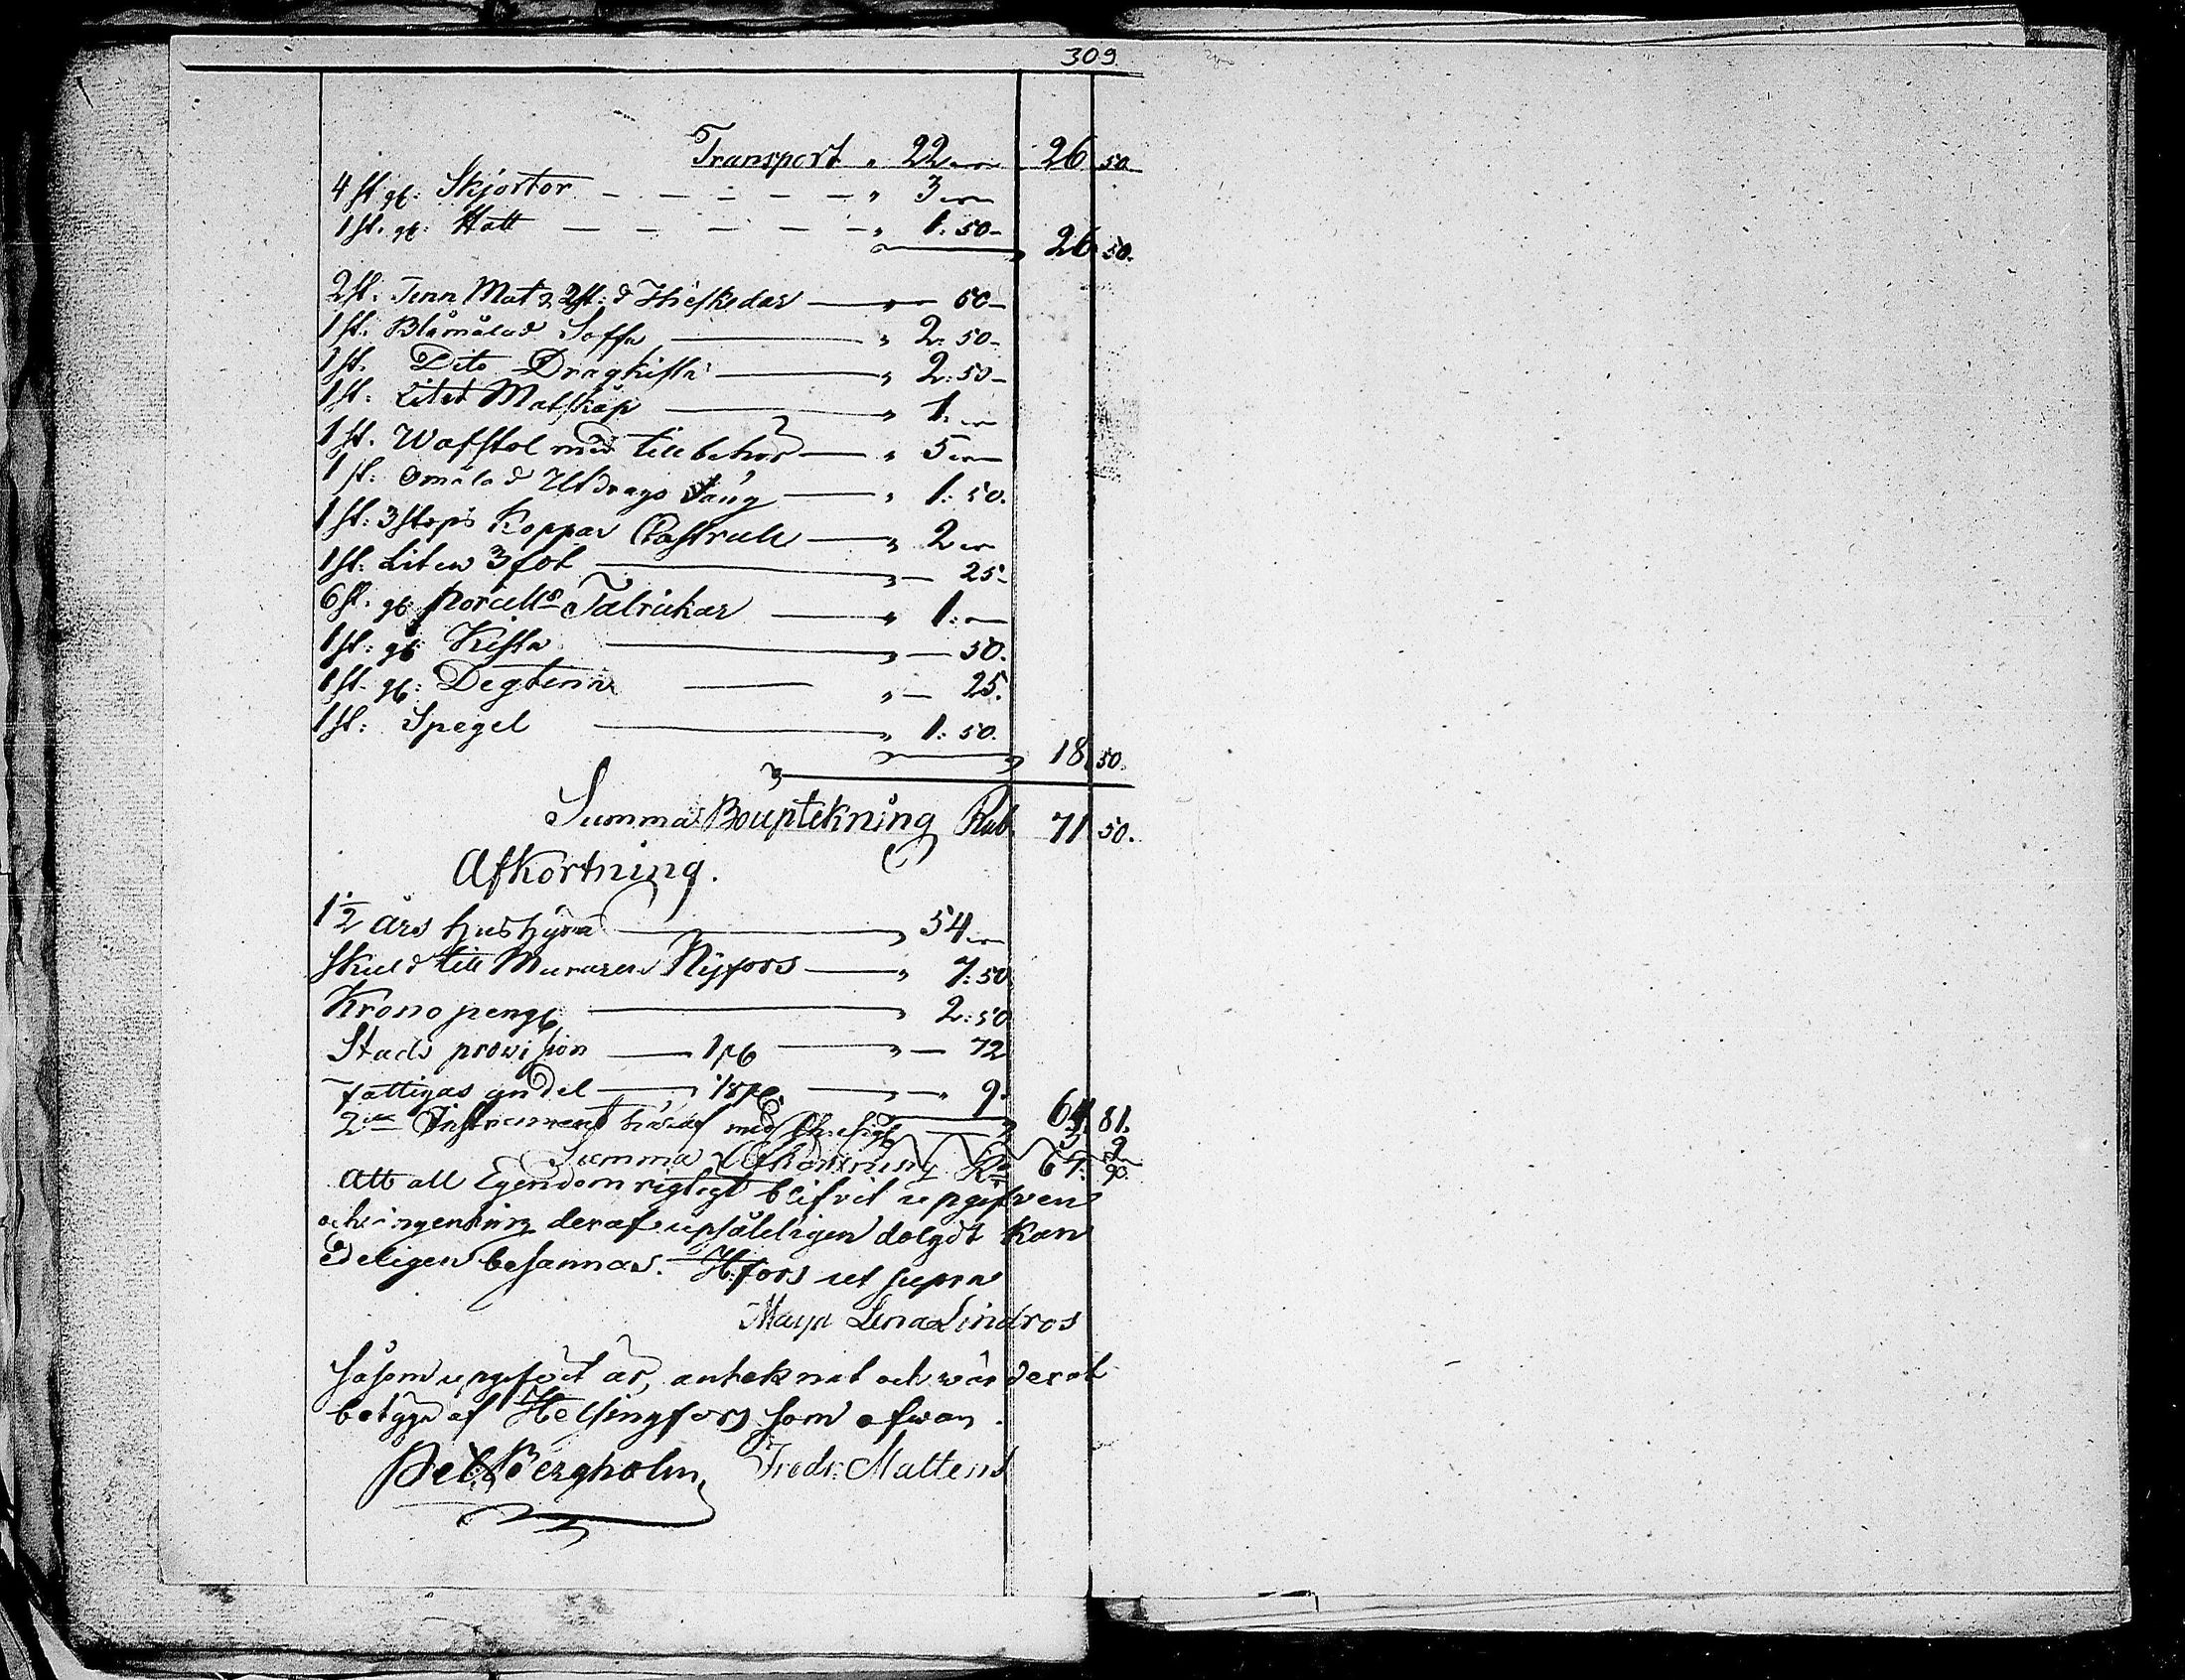 309.
Transport „ 22 — 26 50.
4 st. gl: Skjortor — — — — — „ 3 —
1 st. gl: Hatt — — — — — „ 1. 50 — 26 50.
2 st: Tenn Mat & 2 st: d Théskedar — „ — 50 —
1 st. Blåmålad Soffa — „ 2. 50 —
1 st. Dito Dragkista — „ 2: 50 —
1 st: Litet Matskåp — „ 1. —
1 st. Wäfstol med tillbehör — „ 5 —
1 st: Omålad Utdrags Säng — „ 1: 50.
1 st: 3 stops Koppar Castrull — „ 2 —
1 st: Liten 3 fot — „ — 25 —
6 st. gl. porcell:s Talrickar — „ 1: —
1 st: gl: Kista — „ — 50.
1 st. gl: Degtenna — „ — 25.
1 st: Spegel — „ 1: 50. 18 50.
Summa Bouptekning Rub. 71 50.
Afkortning.
1 1/2 års hushyra — „ 54 —
Skuld till Muraren Nyfors — „ 7: 50
Krono peng: — „ 2: 50
Stads provision — 1 pC — „ — 72
Fattigas andel — 1/8 pC — „ — 9. 64. 81.
2:ne Instrument häraf med — 3 9
Summa Afkortning R: 67. 90.
Att all Egendom rigtigt blifvit upgifven
och ingenting deraf upsåteligen dolgdt kan
Edeligen besannas. H:fors ut supra
Maja Lena Lindros
Såsom upgifvit är, anteknat och wärderat
betyga af Helsingfors som ofwan.
Pet: Bergholm Fredr: Mattens